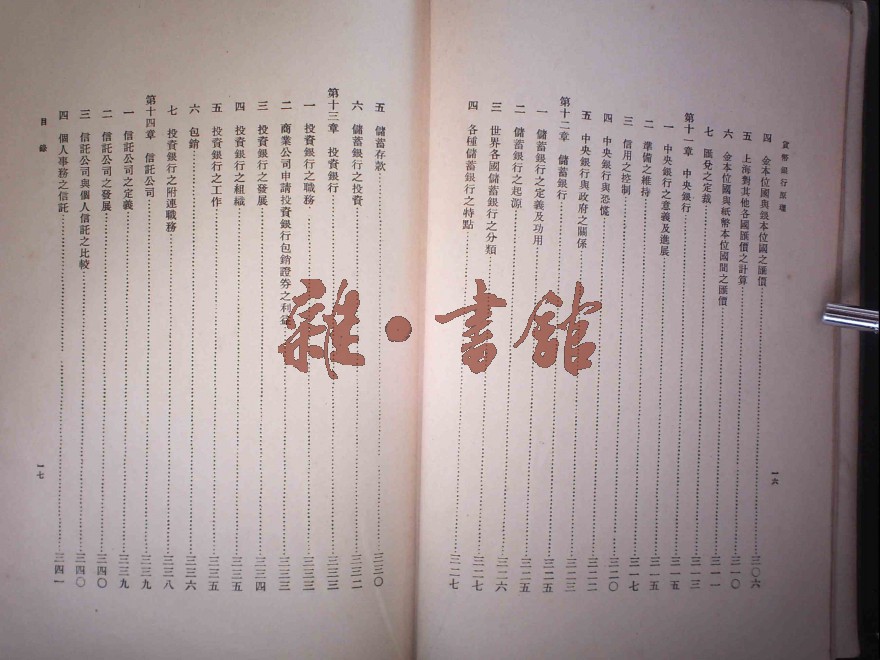 貨幣銀行原理
四 金本位國與銀本位國之匯價……三〇六
五 上海對其他各國匯價之計算……三一〇
六 金本位國與紙幣本位國間之匯價……三一一
七 匯兌之定裁……三一三
第十一章 中央銀行……三一五
一 中央銀行之意義及進展……三一五
二 準備之維持……三一七
三 信用之控制……三二〇
四 中央銀行與恐慌……三二二
五 中央銀行與政府之關係……三二三
第十二章 儲蓄銀行……三二五
一 儲蓄銀行之定義及功用……三二五
二 儲蓄銀行之起源……三二六
三 世界各國儲蓄銀行之分類……三二七
四 各種儲蓄銀行之特點……三二七
一六
五 儲蓄存款……三三〇
六 儲蓄銀行之投資……三三二
第十三章 投資銀行……三三三
一 投資銀行之職務……三三三
二 商業公司申請投資銀行包銷證券之利益……三三三
三 投資銀行之發展……三三四
四 投資銀行之組織……三三五
五 投資銀行之工作……三三五
六 包銷……三三六
七 投資銀行之附連職務……三三八
第十四章 信託公司……三三九
一 信託公司之定義……三三九
二 信託公司之發展……三四〇
三 信託公司與個人信託之比較……三四〇
四 個人事務之信託……三四一
目錄
一七
雜·書館